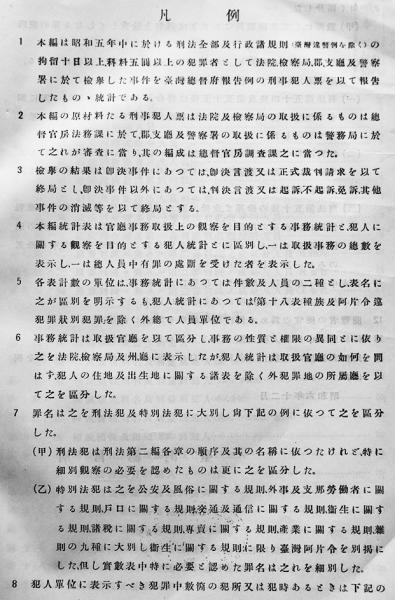 凡例
1 本編は昭和五年中に於ける刑法全部及行政諸規則(臺灣違警例を除く)の
拘留十日以上、科料五圓以上の犯罪者として法院、檢察局、郡、支廳及警察
署に於て檢擧した事件を臺灣總督府報告例の刑事犯人票を以て報告
したもの、統計である。
2 本編の原材料たる刑事犯人票は法院及檢察局の取扱に係るものは總
督官房法務課に於て、郡、支廳及警察署の取扱に係るものは警務局に於
て之れが審査に當り、其の編成は總督官房調査課之に當つた。
3 檢擧の結果は卽決事件にあつては、卽決言渡又は正式裁判請求を以て
終局とし、卽決事件以外にあつては、判決言渡又は起訴、不起訴、免訴、其他
事件の消滅等を以て終局とする。
4 本編統計表は官廳事務取扱上の觀察を目的とする事務統計と、犯人に
關する觀察を目的とする犯人統計とに區別し、一は取扱事務の總數を
表示し、一は總人員中有罪の處斷を受けた者を表示した。
5 各表計數の單位は、事務統計にあつては件數及人員の二種とし、表名に
之が區別を明示するも、犯人統計にあつては「第十八表種族及阿片令違
犯罪狀別犯罪」を除く外總て人員單位である。
6 事務統計は取扱官廳を以て區分し事務の性質と權限の異同とに依り
之を法院、檢察局及州、廳に表示したが、犯人統計は取扱官廳の如何を問
はず、犯人の住地及出生地に關する諸表を除く外犯罪地の所屬廳を以
て之を區分した。
7 罪名は之を刑法犯及特別法犯に大別し尙下記の例に依つて之を區分
した。
(甲) 刑法犯は刑法第二編各章の順序及其の名稱に依つたけれど、特に
細別觀察の必要を認めたものは更に之を區分した。
(乙) 特別法犯は之を公安及風俗に關する規則、外事及支那勞働者に關
する規則、戶口に關する規則、交通及通信に關する規則、衞生に關す
る規則、諸稅に關する規則、專賣に關する規則、產業に關する規則、雜
則の九種に大別し衞生に關する規則に限り臺灣阿片令を別揭に
した、但し實數表中特に必要と認めた罪名は之れを細別した。
8 犯人單位に表示すべき犯罪中數箇の犯所又は犯時あるときは下記の